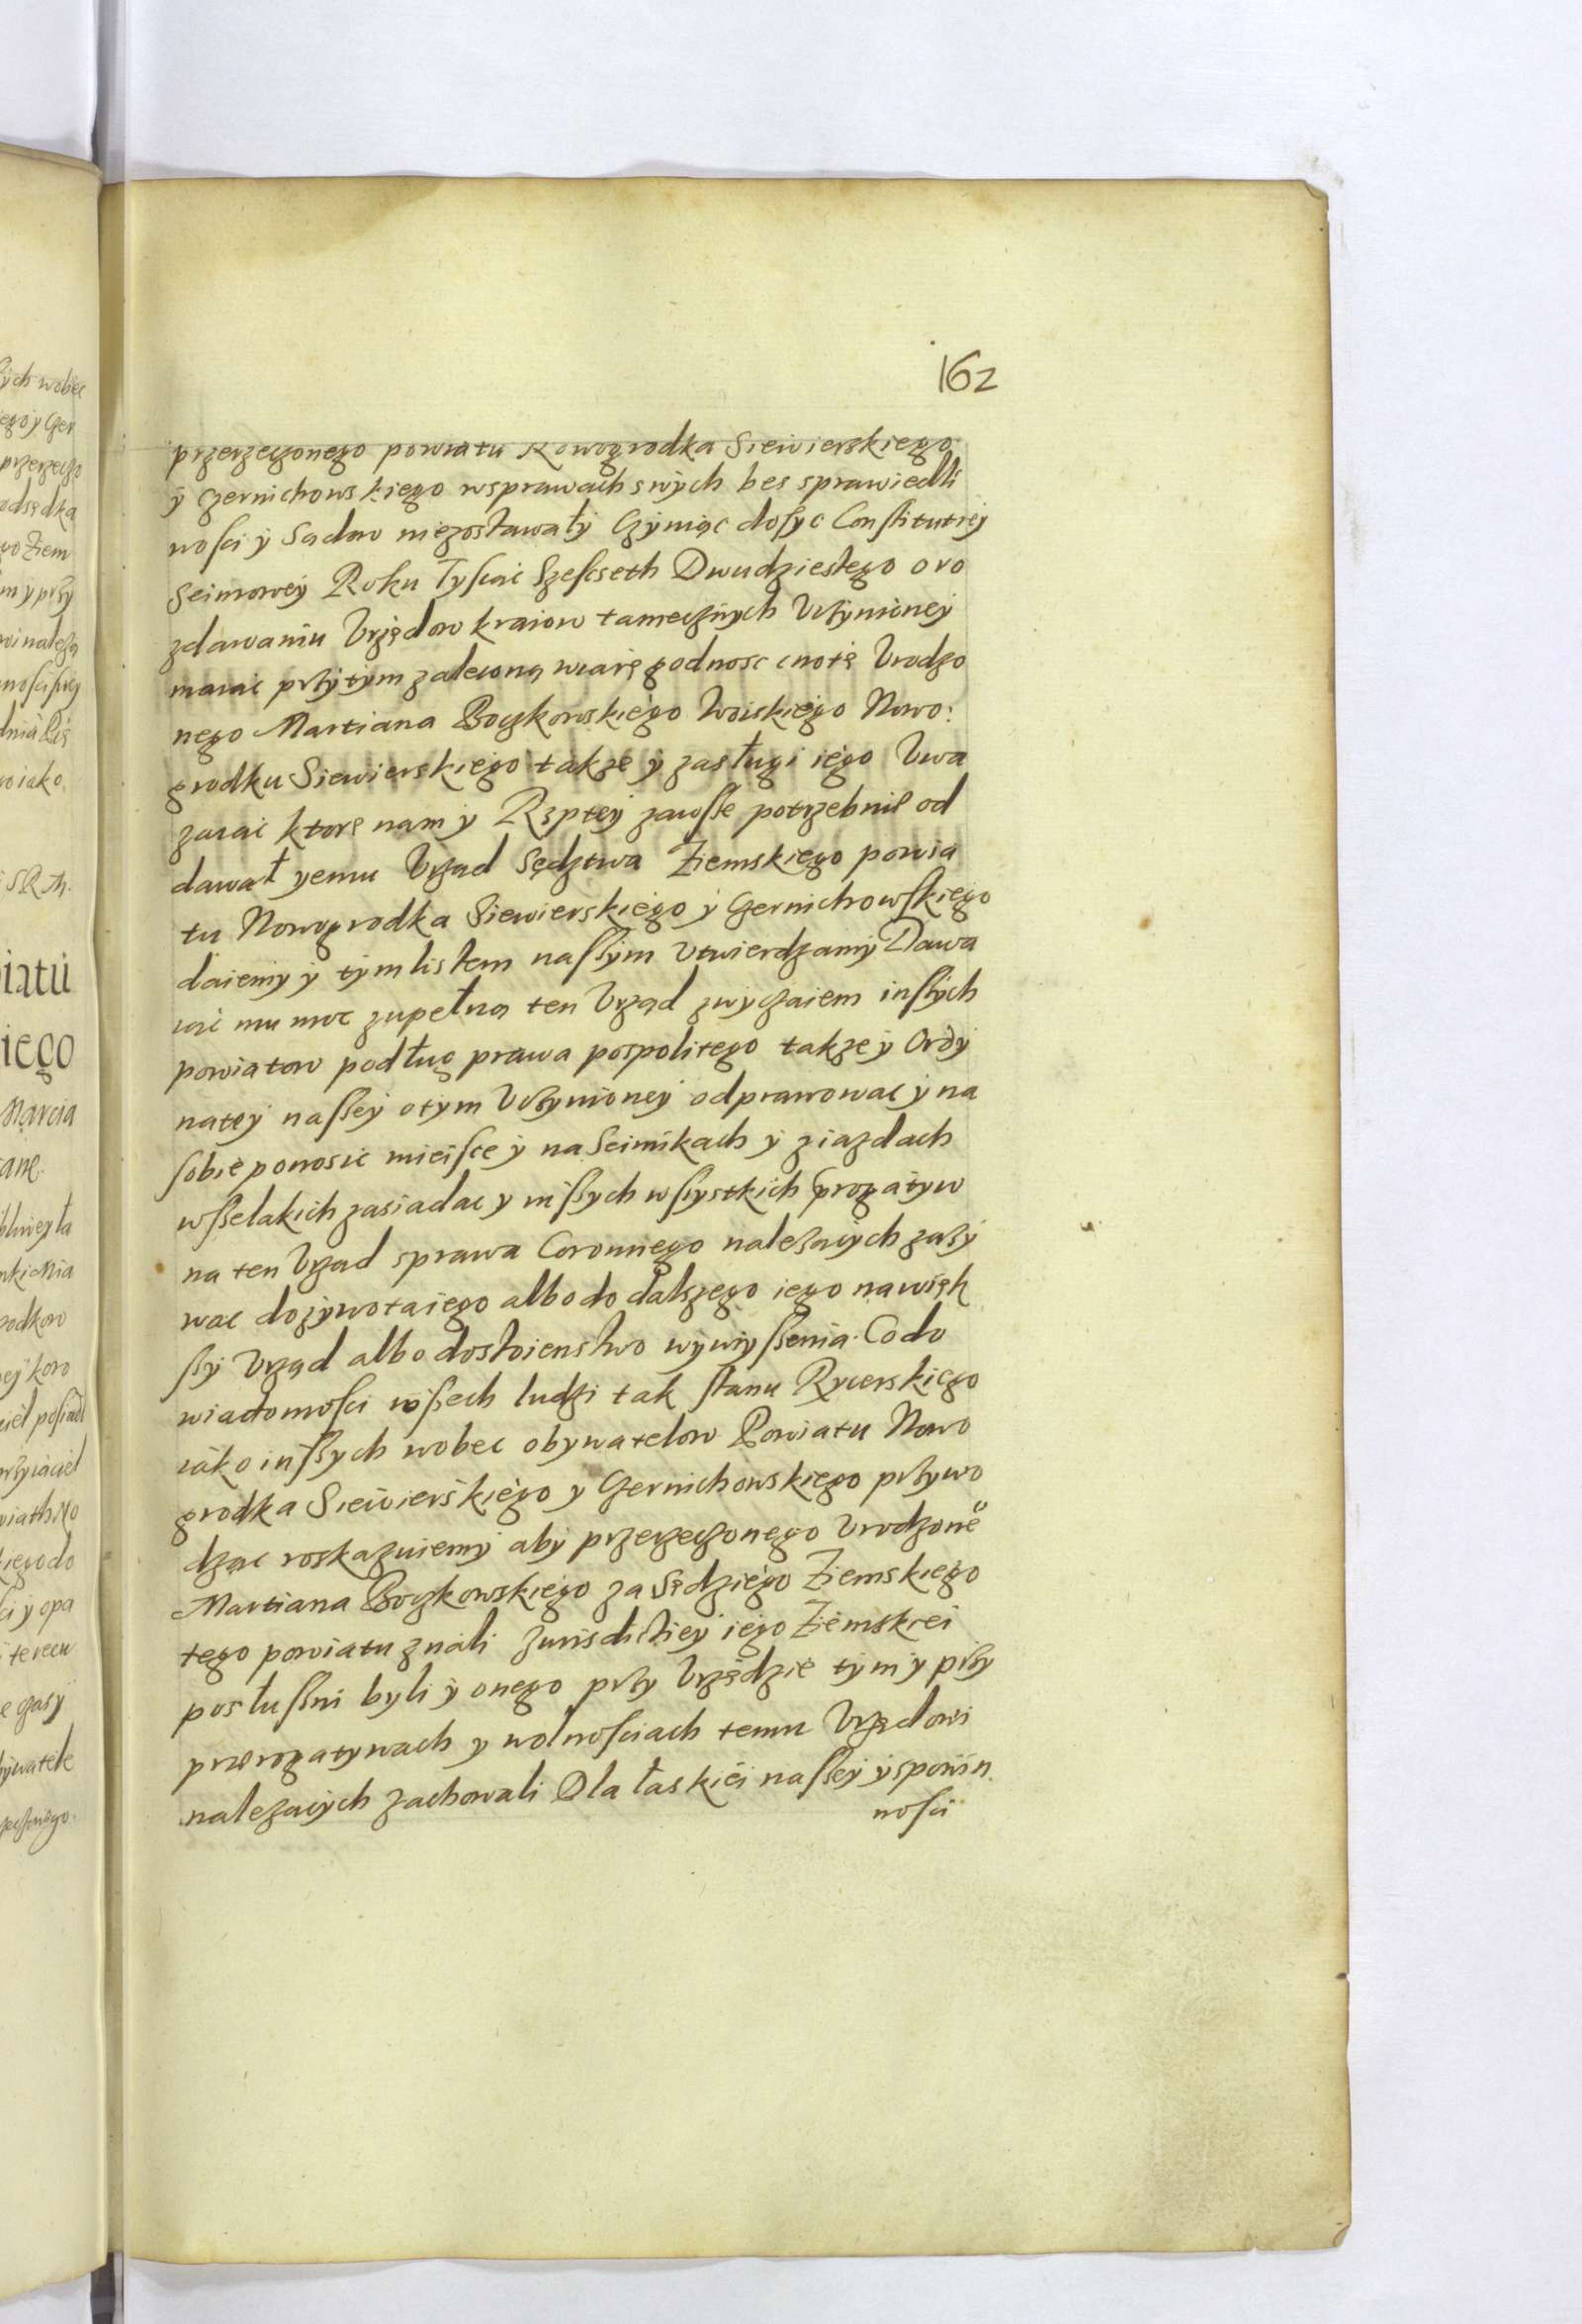 162
przerzeczonego powiatu Nowogrodka Siewierskiego
ÿ Czernichowskiego wsprawach swÿch bes sprawiedli
wosci ÿ Sądow niezostawałÿ Czÿniąc dosyc Constitutieÿ
Seimoweÿ Roku Tysiąc Szescseth Dwudziestego oro
zdawaniu Vrzędow kraiow tamecznych Vczÿnioneÿ
maiąc przÿtÿm zaleconą wiarę godnosc cnotę Vrodzo
nego Martiana Boczkowskiego Woiskiego Nowo:
grodku Siewierskiego także ÿ zasługi iego Vwa
zaiąc ktore nam ÿ Rzpteÿ zawsze potrzebnie od
dawał yemu Vrzad Sędztwa Ziemskiego powia
tu Nowogrodka Siewierskiego ÿ Czernichowskiego
daiemÿ ÿ tÿm listem naszÿm Vtwierdzamÿ Dawa
iąc mu moc zupełną ten Vrząd zwÿczaiem inszÿch
powiatow podług prawa pospolitego takze ÿ Ordÿ
natÿ naszeÿ otÿm Vczÿnioneÿ odprawowac ÿ na
sobie ponosic mieisce ÿ na Seimikach ÿ ziazdach
wszelakich zasiadac y inszych wszystkich prerogatyw
na ten Vrzad sprawa Coronnego należących zażÿ
wac do zÿwota iego albo do dalszego iego nawięk
szÿ Vrząd albo dostoienstwo wÿwÿszenia. Co do
wiadomosci wszech ludzi tak stanu Rycerskiego
iako inszych wobec obywatelow Powiatu Nowo
grodka Siewierskiego y Czernichowskiego przywo
dząc roskazuiemÿ abÿ przerzeczonego Vrodzone°
Martiana Boczkowskiego za Sędziego Ziemskiego
tego powiatu znali Jurisdictieÿ iego Ziemskiei
posłuszni byli ÿ onego przy Vrzędzie tÿm ÿ przy
prerogatywach y wolnosciach temu Vrzędowi
nalezacÿch zachowali Dla łaskiei naszeÿ ÿ spowin
nosci